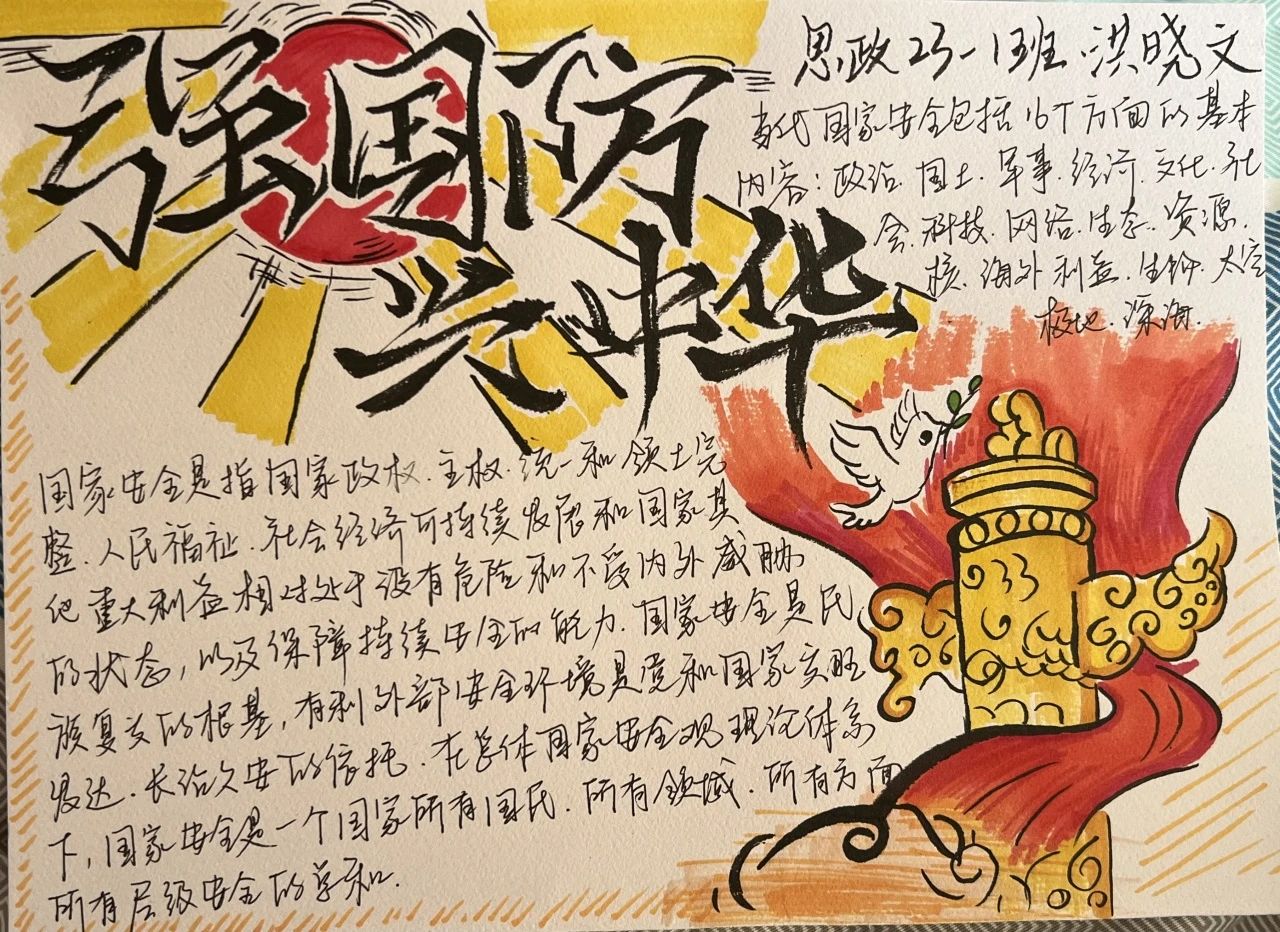 强国防
兴中华
思政23-1班·洪晓文
当代国家安全包括16个方面的基本
内容：政治.国土.军事.经济.文化.社
会.科技.网络.生态.资源.
核.海外利益.生物.太空
极地.深海.
国家安全是指国家政权.主权.统一和领土完
整.人民福祉.社会经济可持续发展和国家其
他重大利益相对处于没有危险和不受内外威胁
的状态，以及保障持续安全的能力.国家安全是民
族复兴的根基，有利外部安全环境是党和国家兴旺
发达.长治久安的依托.在总体国家安全观理论体系
下，国家安全是一个国家所有国民.所有领域.所有方面
所有层级安全的总和.